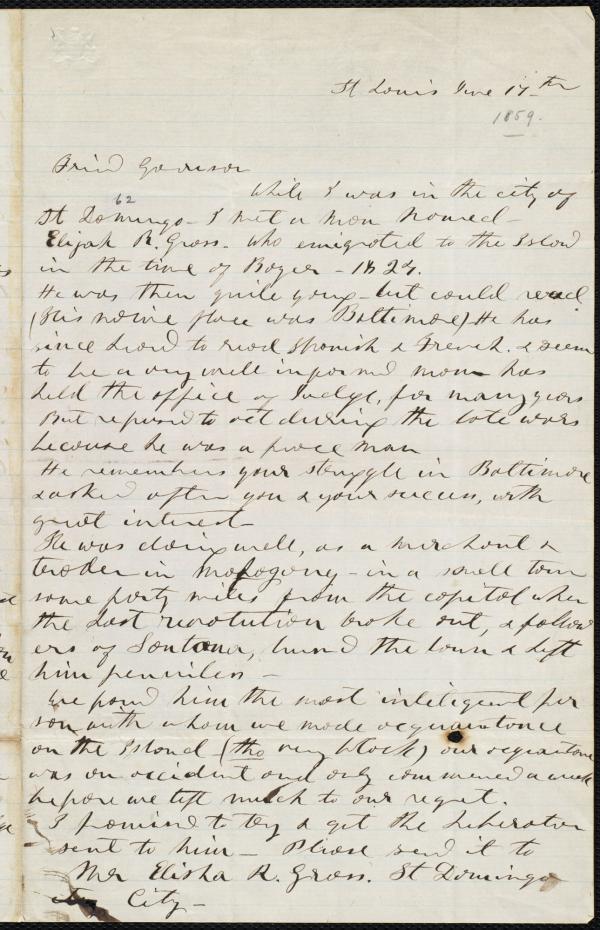 St Louis June 17th
1859.
Frind Garrison
While I was in the city of
62
St Domingo - I met a man named -
Elijah R. Gross - who emigrated to the Island
in the time of Boyer - 1824.
He was then quite young - but could read
(His native place was Baltimore) He has
since leard to read Spanish & French. & seem
to be a very well informd man has
held the office of Judge, for many years
But refused to act during the late wars
because he was a peace man
He remembers your struggle in Baltimore
& asked after you & your success, with
great interest -
He was doing well, as a merchant &
trader in Mahogony - in a small town
some forty miles from the capitol when
the last revolution broke out, & follow
ers of Santana, burnd the town & left
him penniless -
We found him the most inteligent per
son with whom we made acquaintance
on the Island (tho very black) our acquaitance
was an accident and only commenced a week
before we left much to our regret.
I promised to try & get the Liberator
sent to him - Please send it to
Mr Elisha R. Gross. St Domingo
City -